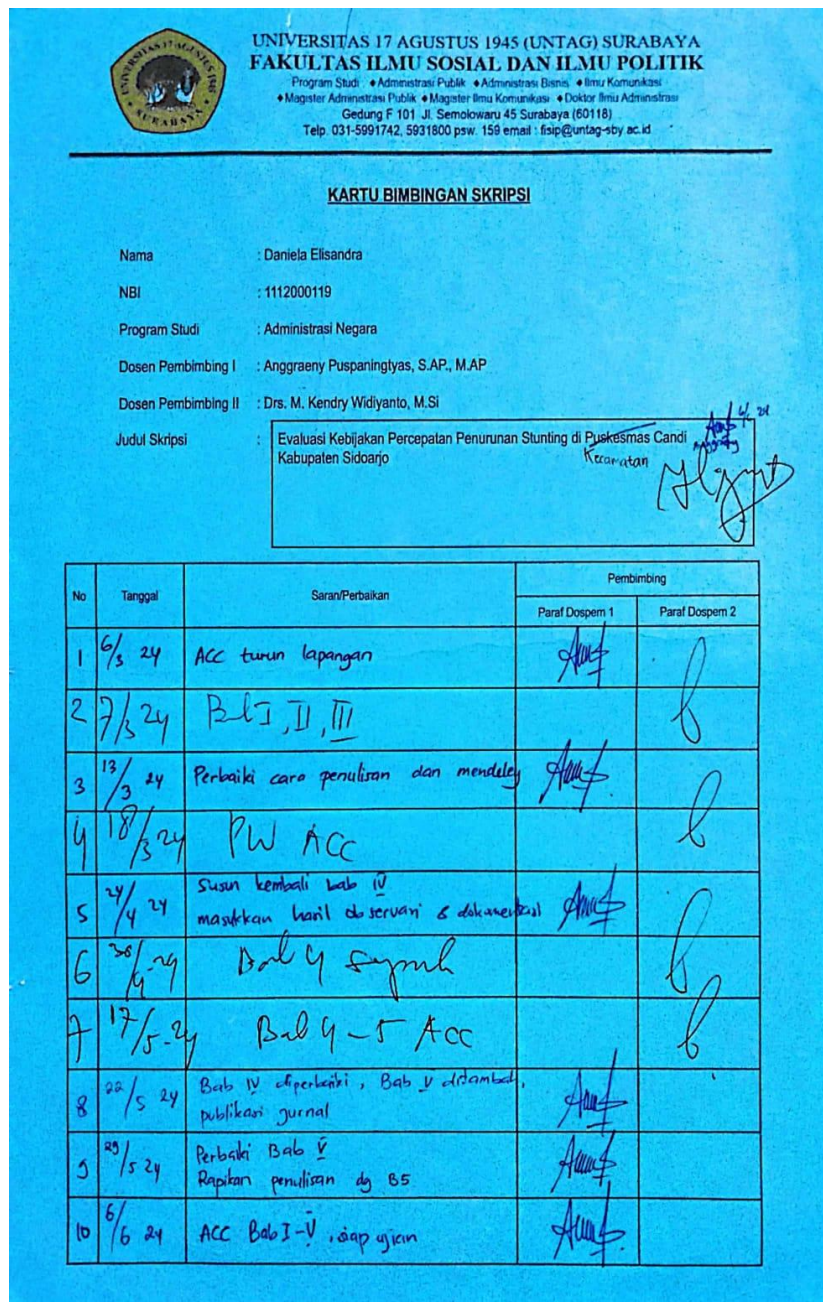 UNIVERSITAS 17 AGUSTUS 1945
SURABAYA
UNIVERSITAS 17 AGUSTUS 1945 (UNTAG) SURABAYA
FAKULTAS ILMU SOSIAL DAN ILMU POLITIK
Program Studi : ♦Administrasi Publik ♦Administrasi Bisnis ♦Ilmu Komunikasi
♦Magister Administrasi Publik ♦Magister Ilmu Komunikasi ♦Doktor Ilmu Administrasi
Gedung F 101 Jl. Semolowaru 45 Surabaya (60118)
Telp. 031-5991742, 5931800 psw. 159 email : fisip@untag-sby.ac.id
KARTU BIMBINGAN SKRIPSI
Nama : Daniela Elisandra
NBI : 1112000119
Program Studi : Administrasi Negara
Dosen Pembimbing I : Anggraeny Puspaningtyas, S.AP., M.AP
Dosen Pembimbing II : Drs. M. Kendry Widiyanto, M.Si
6/6 24
Judul Skripsi : Evaluasi Kebijakan Percepatan Penurunan Stunting di Puskesmas Candi
Kabupaten Sidoarjo
Kecamatan
No Tanggal Saran/Perbaikan Pembimbing
Paraf Dospem 1 Paraf Dospem 2
1 6/3 24 ACC turun lapangan
2 7/3 24 Bab I, II, III
3 13/3 24 Perbaiki cara penulisan dan mendeley
4 18/3 24 PW ACC
5 24/4 24 Susun kembali bab IV
masukkan hasil observasi & dokumentasi
6 30/4-24 Bab 4
7 17/5-24 Bab 4-5 ACC
8 22/5 24 Bab IV diperbaiki, Bab V ditambah,
publikasi jurnal
9 29/5 24 Perbaiki Bab V
Rapikan penulisan dg B5
10 6/6 24 ACC Bab I-V, siap ujian